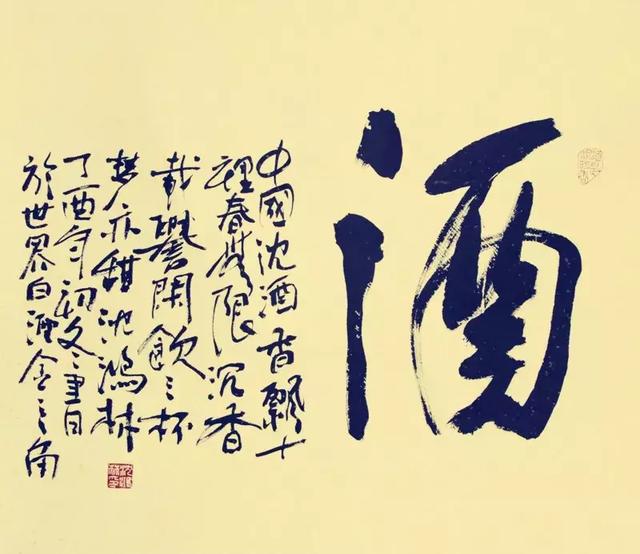 酒
中國沈酒香飄十
裡春無限沉香
載譽開飲三杯
夢亦甜沈鴻林
丁酉年初冬之日
於世界白酒金三角